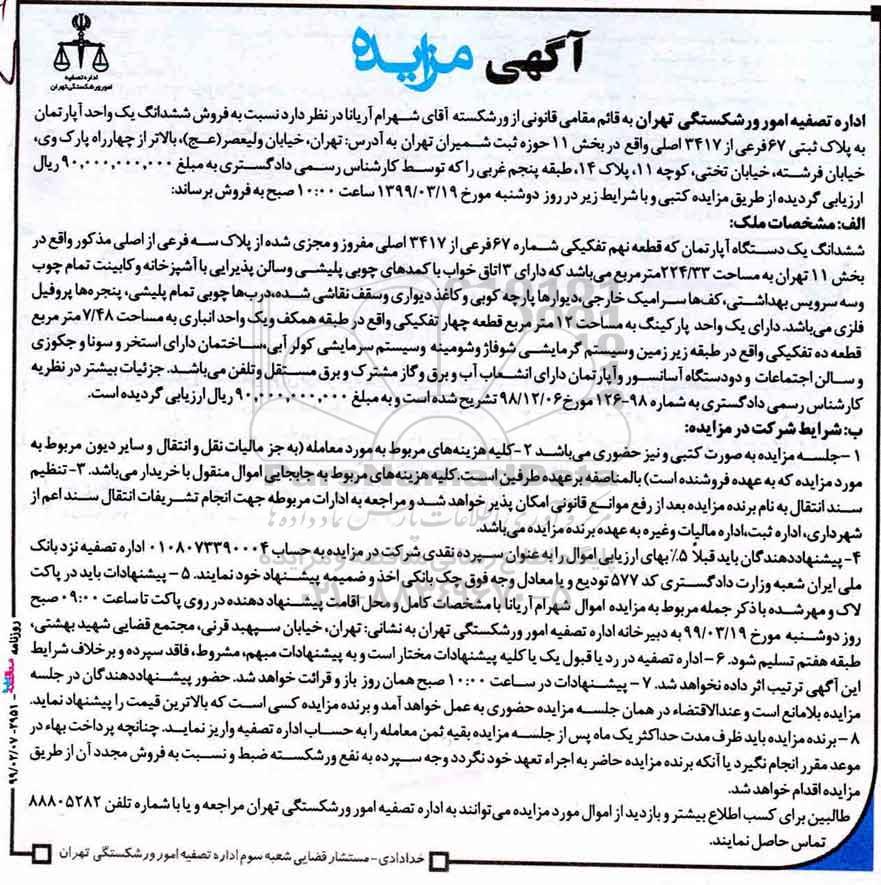 آگهی مزایده
اداره تصفیه
امور ورشکستگی تهران
اداره تصفیه امور ورشکستگی تهران به قائم مقامی قانونی از ورشکسته آقای شهرام آریانا در نظر دارد نسبت به فروش ششدانگ یک واحد آپارتمان
به پلاک ثبتی ۶۷ فرعی از ۳۴۱۷ اصلی واقع در بخش ۱۱ حوزه ثبت شمیران تهران به آدرس: تهران، خیابان ولیعصر(عج)، بالاتر از چهارراه پارک وی،
خیابان فرشته، خیابان تختی، کوچه ۱۱، پلاک ۱۴، طبقه پنجم غربی را که توسط کارشناس رسمی دادگستری به مبلغ ۹۰,۰۰۰,۰۰۰,۰۰۰ ریال
ارزیابی گردیده از طریق مزایده کتبی و با شرایط زیر در روز دوشنبه مورخ ۱۳۹۹/۰۳/۱۹ ساعت ۱۰:۰۰ صبح به فروش برساند:
الف: مشخصات ملک:
ششدانگ یک دستگاه آپارتمان که قطعه نهم تفکیکی شماره ۶۷ فرعی از ۳۴۱۷ اصلی مفروز و مجزی شده از پلاک سه فرعی از اصلی مذکور واقع در
بخش ۱۱ تهران به مساحت ۲۲۴/۳۳ متر مربع می‌باشد که دارای ۳ اتاق خواب با کمدهای چوبی پلیشی و سالن پذیرایی با آشپزخانه و کابینت تمام چوب
وسه سرویس بهداشتی، کف‌ها سرامیک خارجی، دیوارها پارچه کوبی و کاغذ دیواری وسقف نقاشی شده، درب‌ها چوبی تمام پلیشی، پنجره‌ها پروفیل
فلزی می‌باشد. دارای یک واحد پارکینگ به مساحت ۱۲ متر مربع قطعه چهار تفکیکی واقع در طبقه همکف و یک واحد انباری به مساحت ۷/۴۸ متر مربع
قطعه ده تفکیکی واقع در طبقه زیر زمین وسیستم گرمایشی شوفاژ وشومینه وسیستم سرمایشی کولر آبی، ساختمان دارای استخر و سونا و جکوزی
و سالن اجتماعات و دودستگاه آسانسور وآپارتمان دارای انشعاب آب و برق و گاز مشترک و برق مستقل وتلفن می‌باشد. جزئیات بیشتر در نظریه
کارشناس رسمی دادگستری به شماره ۹۸-۱۲۶ مورخ ۹۸/۱۲/۰۶ تشریح شده است و به مبلغ ۹۰,۰۰۰,۰۰۰,۰۰۰ ریال ارزیابی گردیده است.
ب: شرایط شرکت در مزایده:
۱- جلسه مزایده به صورت کتبی و نیز حضوری می‌باشد ۲- کلیه هزینه‌های مربوط به مورد معامله (به جز مالیات نقل و انتقال و سایر دیون مربوط به
مورد مزایده که به عهده فروشنده است) بالمناصفه بر عهده طرفین است. کلیه هزینه‌های مربوط به جابجایی اموال منقول با خریدار می‌باشد. ۳- تنظیم
سند انتقال به نام برنده مزایده بعد از رفع موانع قانونی امکان پذیر خواهد شد و مراجعه به ادارات مربوطه جهت انجام تشریفات انتقال سند اعم از
شهرداری، اداره ثبت، اداره مالیات وغیره به عهده برنده مزایده می‌باشد.
۴- پیشنهاددهندگان باید قبلاً ۵٪ بهای ارزیابی اموال را به عنوان سپرده نقدی شرکت در مزایده به حساب ۰۱۰۸۰۷۳۳۹۰۰۰۴ اداره تصفیه نزد بانک
ملی ایران شعبه وزارت دادگستری کد ۵۷۷ تودیع و یا معادل وجه فوق چک بانکی اخذ و ضمیمه پیشنهاد خود نمایند. ۵- پیشنهادات باید در پاکت
لاک و مهر شده با ذکر جمله مربوط به مزایده اموال شهرام آریانا با مشخصات کامل و محل اقامت پیشنهاد دهنده در روی پاکت تا ساعت ۰۹:۰۰ صبح
روز دوشنبه مورخ ۹۹/۰۳/۱۹ به دبیرخانه اداره تصفیه امور ورشکستگی تهران به نشانی: تهران، خیابان سپهبد قرنی، مجتمع قضایی شهید بهشتی،
طبقه هفتم تسلیم شود. ۶- اداره تصفیه در رد یا قبول یک یا کلیه پیشنهادات مختار است و به پیشنهادات مبهم، مشروط، فاقد سپرده و بر خلاف شرایط
این آگهی ترتیب اثر داده نخواهد شد. ۷- پیشنهادات در ساعت ۱۰:۰۰ صبح همان روز باز و قرائت خواهد شد. حضور پیشنهاددهندگان در جلسه
مزایده بلامانع است و عندالاقتضاء در همان جلسه مزایده حضوری به عمل خواهد آمد و برنده مزایده کسی است که بالاترین قیمت را پیشنهاد نماید.
۸- برنده مزایده باید ظرف مدت حداکثر یک ماه پس از جلسه مزایده بقیه ثمن معامله را به حساب اداره تصفیه واریز نماید. چنانچه پرداخت بهاء در
موعد مقرر انجام نگیرد یا آنکه برنده مزایده حاضر به اجراء تعهد خود نگردد وجه سپرده به نفع ورشکسته ضبط و نسبت به فروش مجدد آن از طریق
مزایده اقدام خواهد شد.
طالبین برای کسب اطلاع بیشتر و بازدید از اموال مورد مزایده می‌توانند به اداره تصفیه امور ورشکستگی تهران مراجعه و یا با شماره تلفن ۸۸۸۰۵۲۸۲
تماس حاصل نمایند.
خدادادی- مستشار قضایی شعبه سوم اداره تصفیه امور ورشکستگی تهران
روزنامه مناقصه - ۳۹۵۱-۹۹/۰۲/۰۷
ParsNamadData
۰۲۱-۸۸۳۴۹۶۷۰-۵